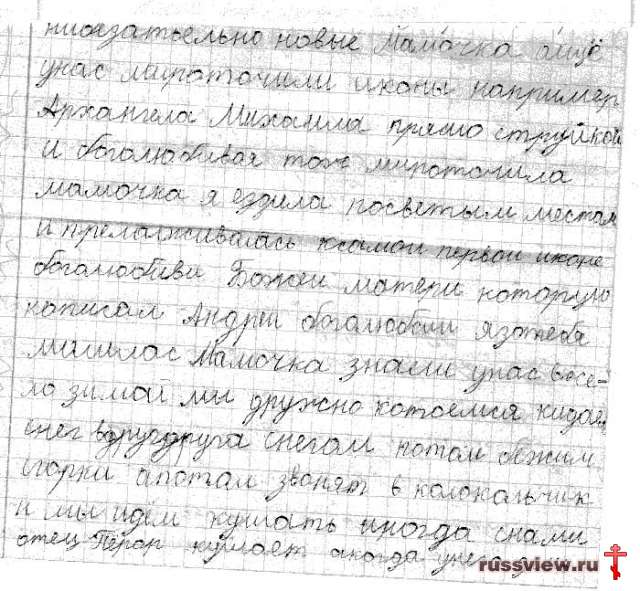 ниоезатьельно новые Мамочка аищё
унас мироточили иконы например
Архангела Михаила прямо струйкой
и боголюбивая тож мироточила
мамочка я ездила посветым местам
и прелаживалась ксамой первой иконе
боголюбиви Божеи матери которую
написал Андрей боголюбский язатебя
малилас Мамочка знаеш унас весе=
ло зимой мы дружно катоемся кидаем
снег вдругдруга снегом потом бежим
сгорки апотам звонят в колокальчик
и мы идём кушать иногда снами
отец Пётор кушает аногда унего
russview.ru